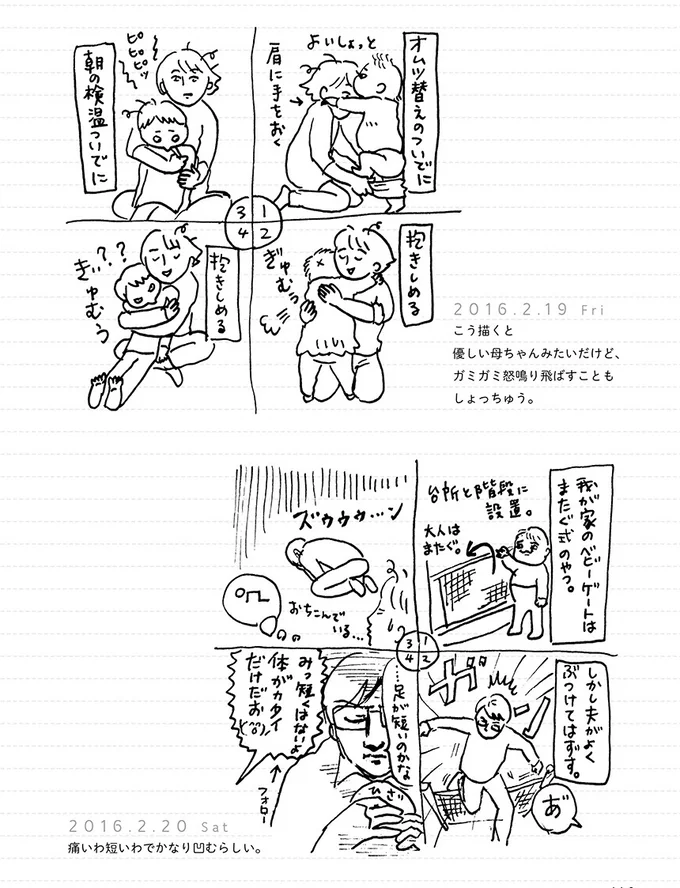 オムツ替えのついでに
よいしょっと
肩に手をおく
1
2
3
4
抱きしめる
ぎゅむっ
朝の検温ついでに
ピピピッ
抱きしめる
??
ぎゅむぅ
2016.2.19 Fri
こう描くと
優しい母ちゃんみたいだけど、
ガミガミ怒鳴り飛ばすことも
しょっちゅう。
我が家のベビーゲートは
またぐ式のやつ。
台所と階段に
設置。
大人は
またぐ。
1
2
3
4
しかし夫がよく
ぶつけてはずす。
ガシーン
あ゛
ズゥゥゥ…ン
おちこんで
いる…
…足が短いのかな
ひざ
みっ短くはないよ
体がカタイ
だけだお
フォロー
2016.2.20 Sat
痛いわ短いわでかなり凹むらしい。